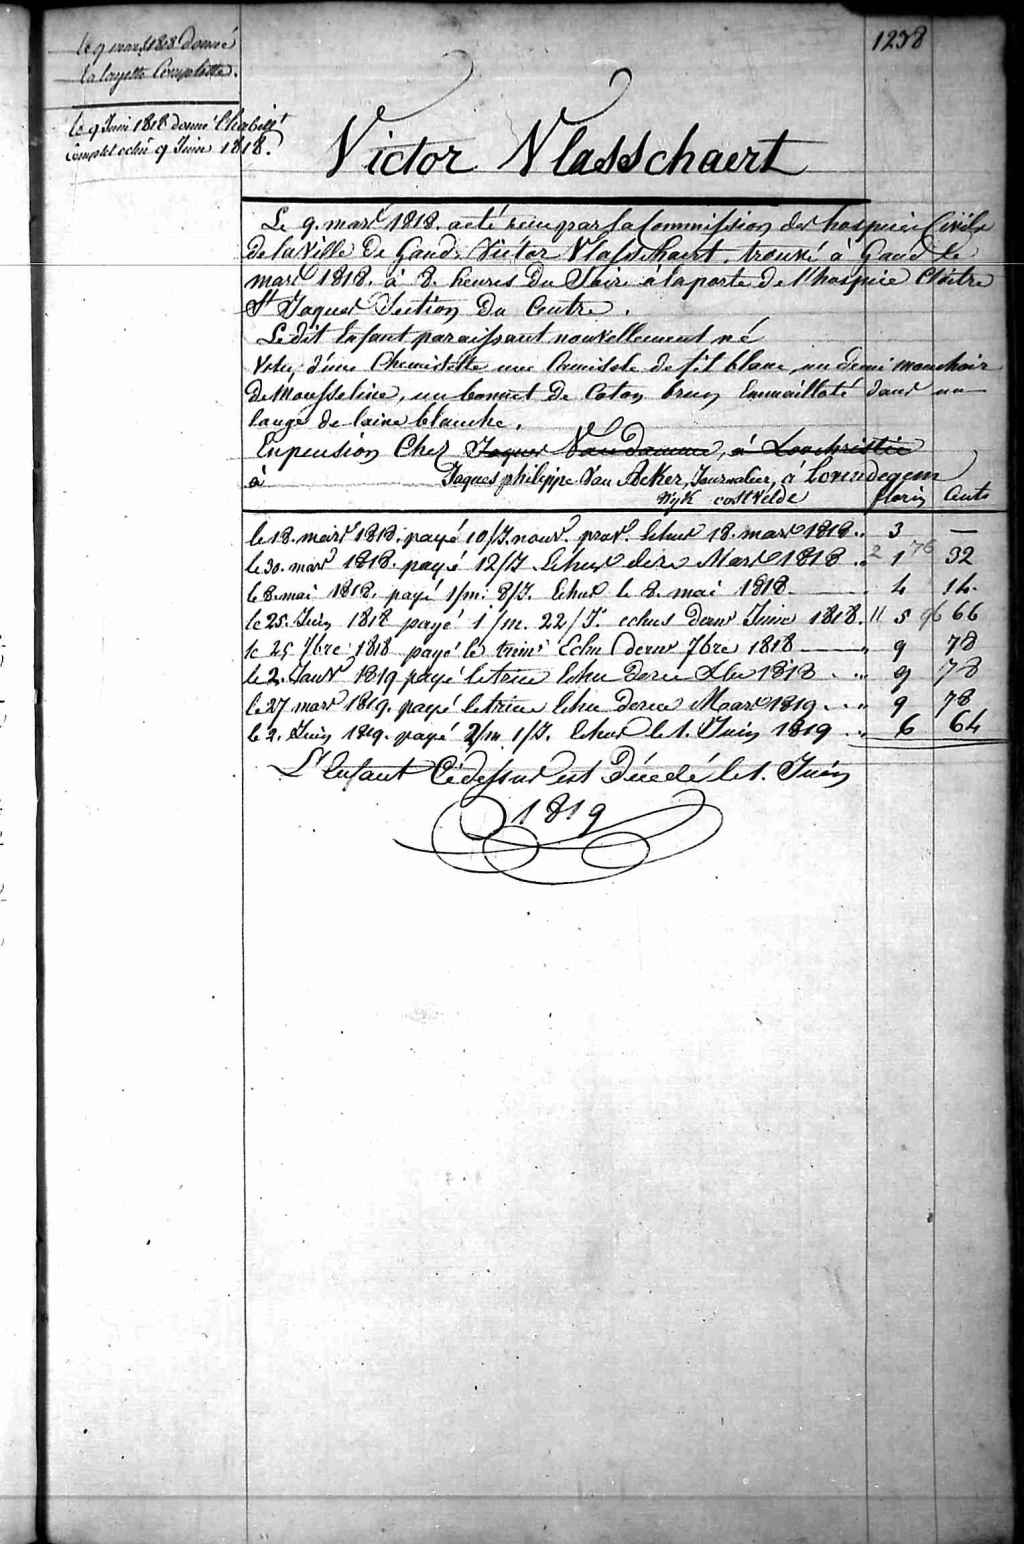 1238
le 9 mars 1818 donné
la layette Complette.
le 9 Juin 1818 donné l'habillt
Complet echu 9 Juin 1818.
Victor Vlasschaert
Le 9. mars 1818. a été reçu par la Commission des hospices Civils
de la Ville de Gand. Victor Vlasschaert, trouvé à Gand le
mars 1818. à 8. heures du Soire à la porte de l'hospice Cloitre
St Jaques Section du Centre.
Le dit Enfant paraissant nouvellement né
Vetu d'une Chemisette une Camisole de fil blanc, un demi mouchoir
de Mousseline, un bonnet de Coton brun Emmailloté dans un
lange de laine blanche.
En pension Chez Jaques Van Damme, à Loochristie
à Jaques philippe Van Acker, Journalier, à Lovendegem
Wyk oostvelde
florin Cents
le 18. mars 1818. payé 10/J. nour. prov. Echus 18. mars 1818. 3 —
le 30. mars 1818. payé 12/J. Echus dere Mars 1818 2 76 1 32
le 8. mai 1818. payé 1/m: 8/J. Echus le 8. mai 1818. 4 14.
le 25. Juin 1818 payé 1/m. 22/Js echus dernr Juin 1818. 11 96 5 66
le 25 7bre 1818 payé le trimre Echu dernr 7bre 1818 9 78
le 2. Janvr 1819 payé le trim Echu dernr Xbre 1818 9 78
le 27 mars 1819. payé le trim Echu dernr Maars 1819 9 78
le 2. Juin 1819. payé 2/m 1/J. Echus le 1. Juin 1819 6 64
L'Enfant Cidessus est Décédé le 1. Juin
1819